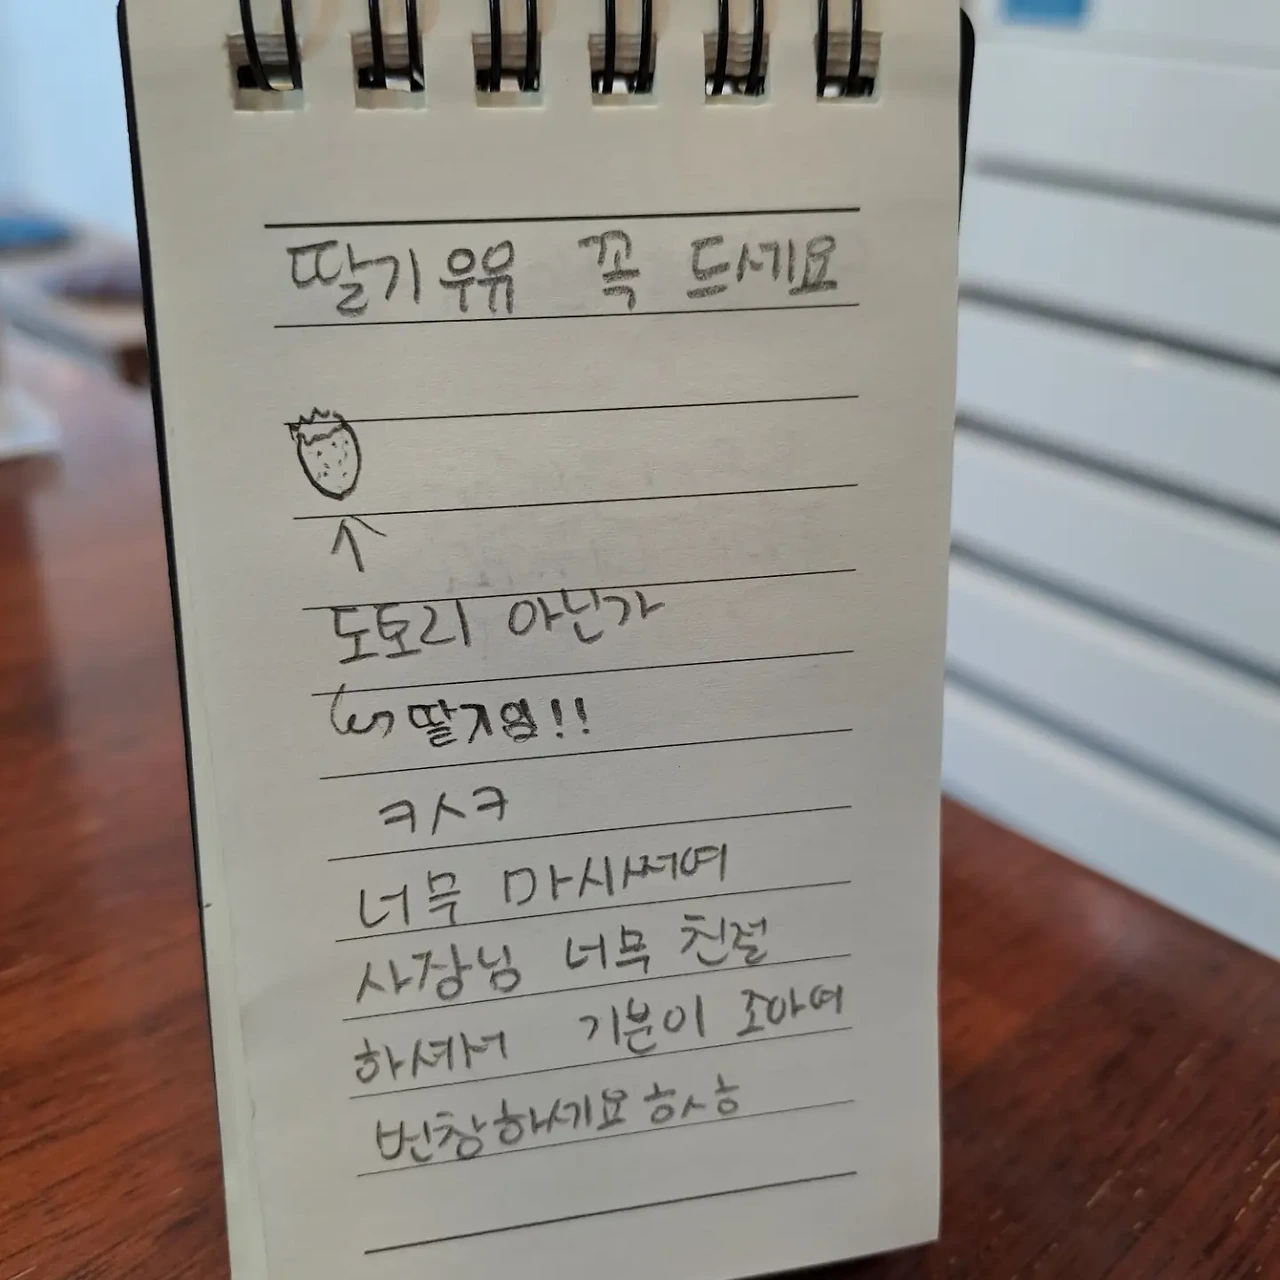 딸기우유 꼭 드세요
도토리 아닌가
딸기임!!
ㅋㅅㅋ
너무 마시써여
사장님 너무 친절
하셔서 기분이 조아여
번창하세요 ㅎㅅㅎ